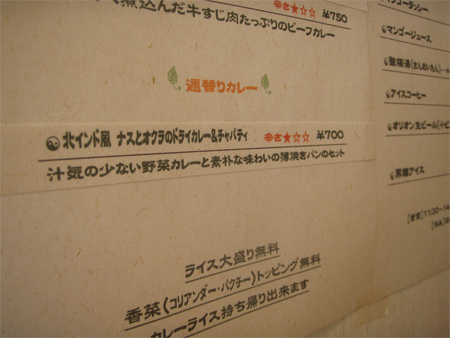 煮込んだ牛すじ肉たっぷりのビーフカレー
辛さ★☆☆ ¥750
週替りカレー
☯北インド風 ナスとオクラのドライカレー&チャパティ 辛さ★☆☆ ¥700
汁気の少ない野菜カレーと素朴な味わいの薄焼きパンのセット
ライス大盛り無料
香菜(コリアンダー・パクチー)トッピング無料
カレーライス持ち帰り出来ます
マンゴーラッシー
マンゴージュース
酸梅湯(さんめいたん)
アイスコーヒー
オリオン生ビール(小ビ
黒糖アイス
[営業]11:30~14